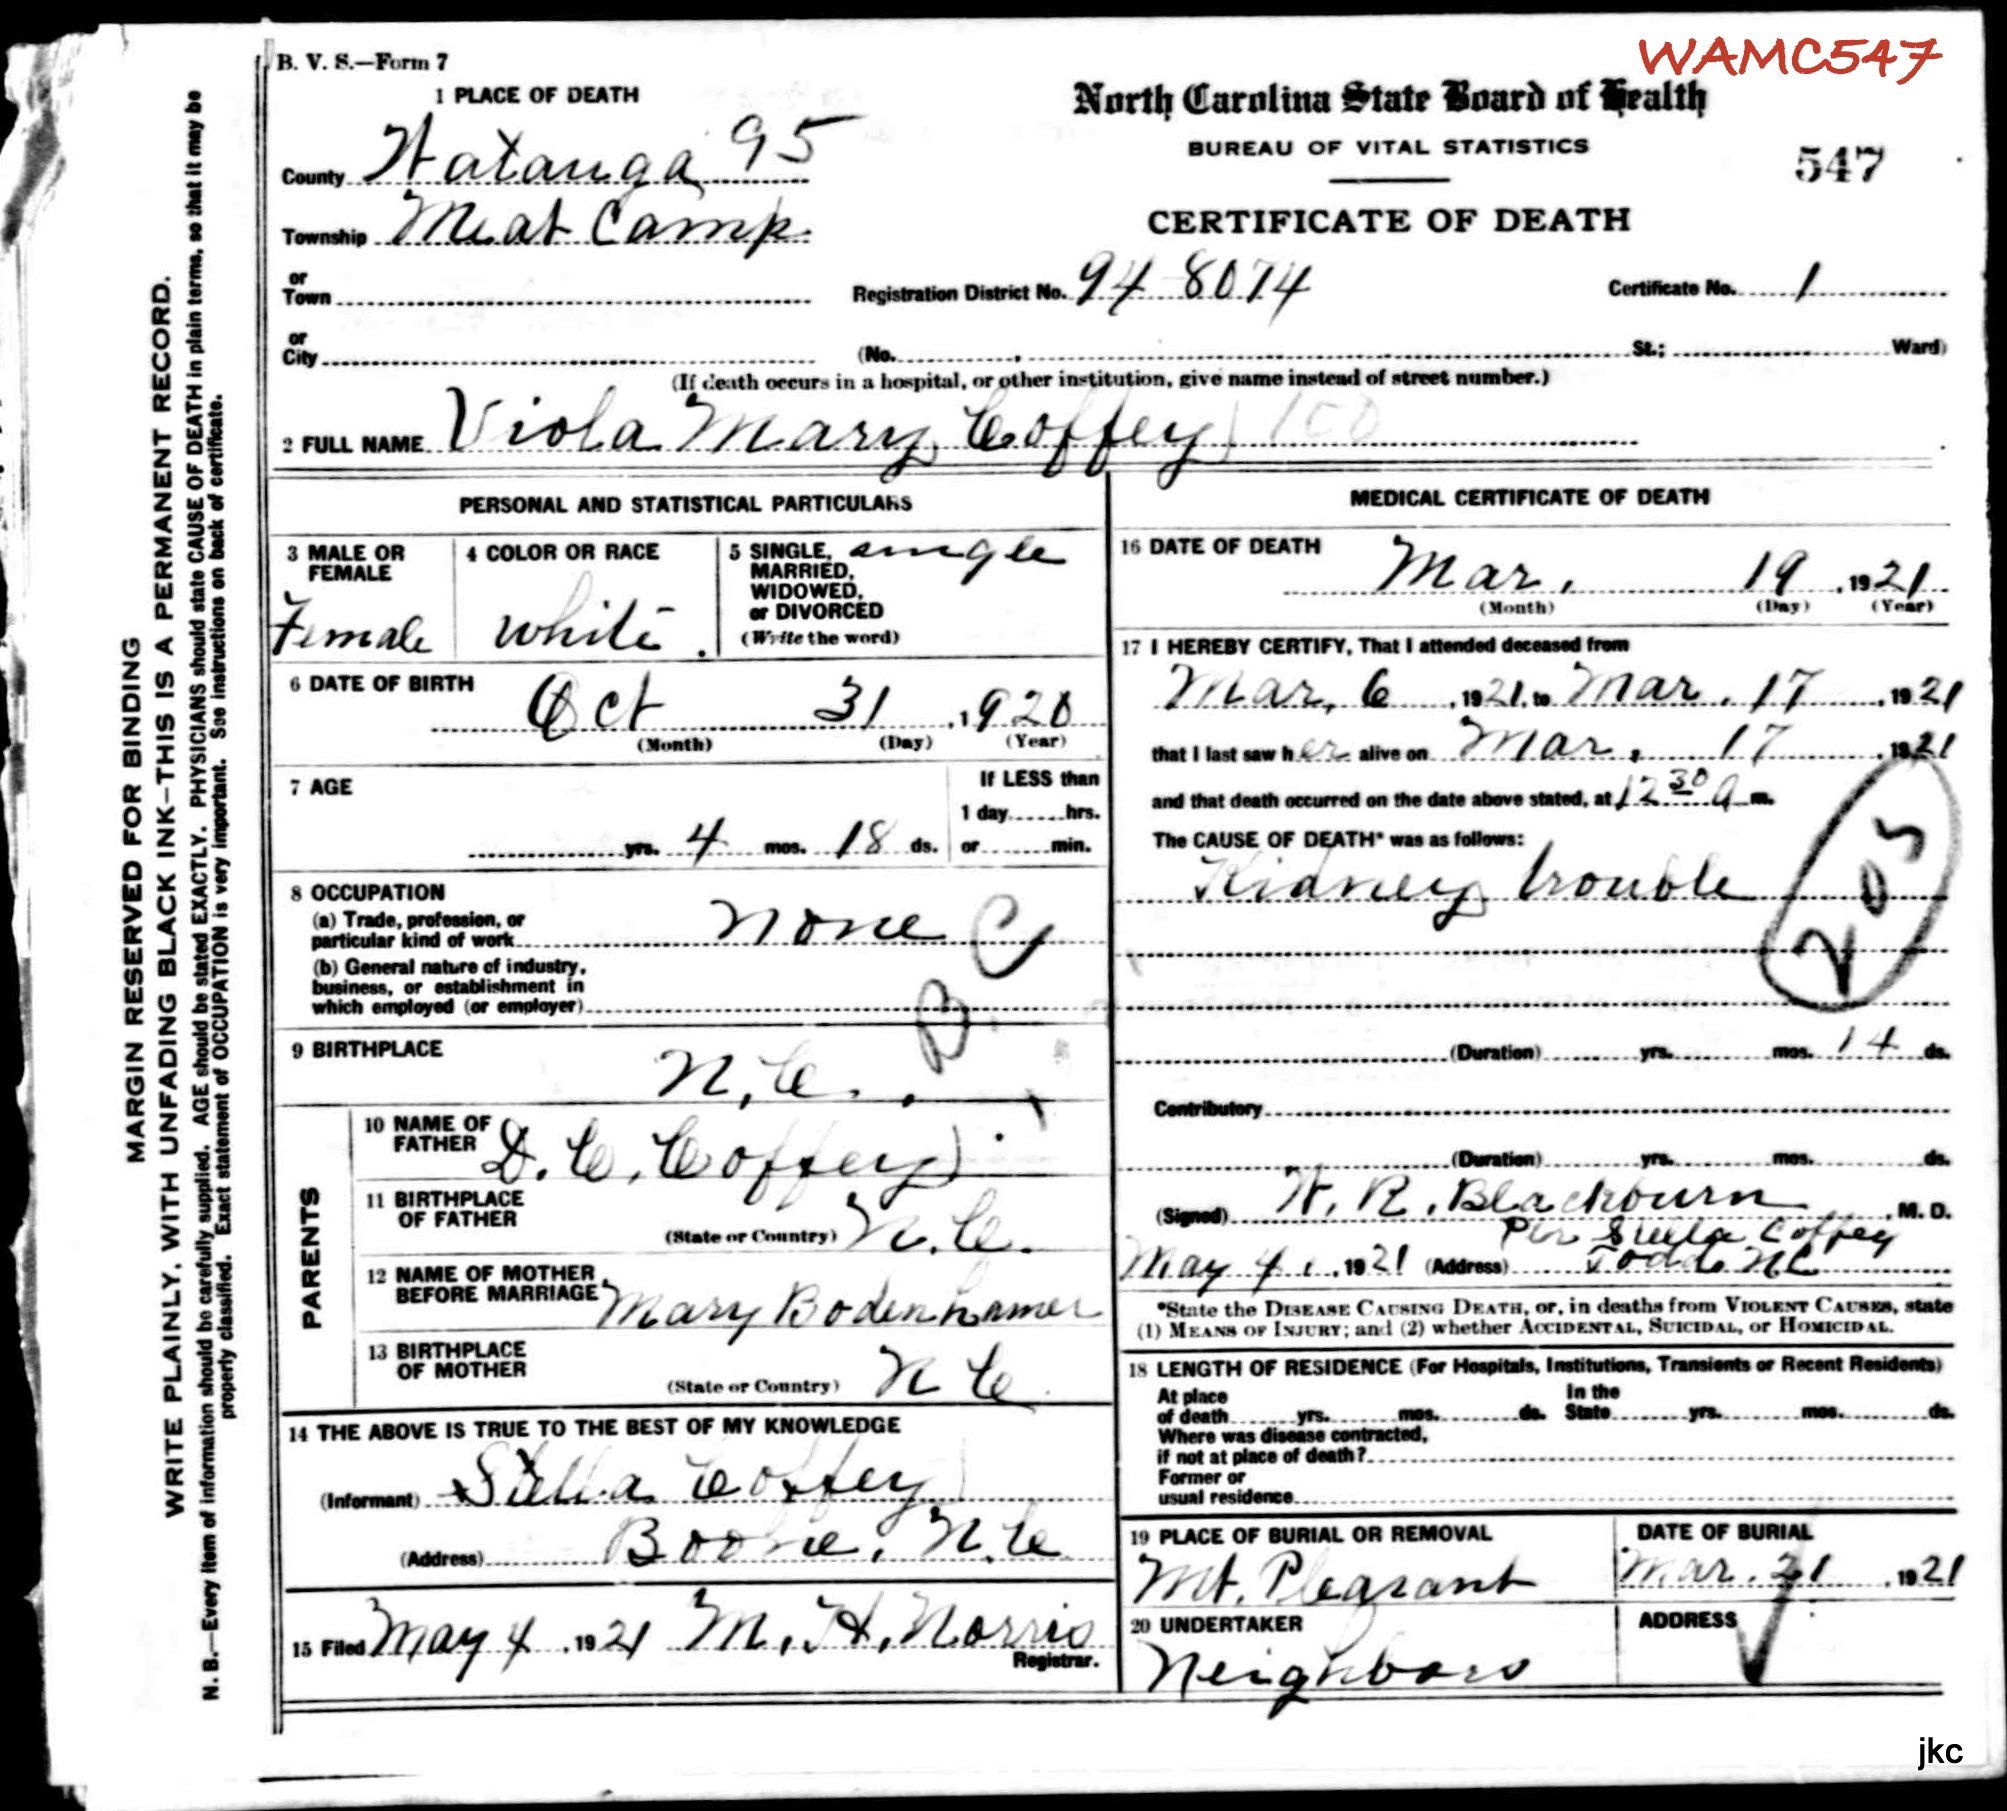 WAMC547
B. V. S.—Form 7
1 PLACE OF DEATH
North Carolina State Board of Health
BUREAU OF VITAL STATISTICS
547
CERTIFICATE OF DEATH
County Watauga 95
Township Meat Camp
or
Town
Registration District No. 94-8074
Certificate No. 1
or
City
(No. , St.; Ward)
(If death occurs in a hospital, or other institution, give name instead of street number.)
2 FULL NAME Viola Mary Coffey
PERSONAL AND STATISTICAL PARTICULARS
3 MALE OR
FEMALE
Female
4 COLOR OR RACE
White
5 SINGLE, single
MARRIED,
WIDOWED,
or DIVORCED
(Write the word)
6 DATE OF BIRTH
Oct 31, 1920
(Month) (Day) (Year)
7 AGE
If LESS than
1 day......hrs.
yrs. 4 mos. 18 ds. or........min.
8 OCCUPATION
(a) Trade, profession, or
particular kind of work None
(b) General nature of industry,
business, or establishment in
which employed (or employer)
B C
9 BIRTHPLACE
N. C.
PARENTS
10 NAME OF
FATHER D. C. Coffey
11 BIRTHPLACE
OF FATHER
(State or Country) N. C.
12 NAME OF MOTHER
BEFORE MARRIAGE Mary Bodenhamer
13 BIRTHPLACE
OF MOTHER
(State or Country) N C
14 THE ABOVE IS TRUE TO THE BEST OF MY KNOWLEDGE
(Informant) Stella Coffey
(Address) Boone, N. C
15 Filed May 4, 1921 M. H. Norris
Registrar.
MEDICAL CERTIFICATE OF DEATH
16 DATE OF DEATH
Mar. 19, 1921
(Month) (Day) (Year)
17 I HEREBY CERTIFY, That I attended deceased from
Mar, 6, 1921, to Mar. 17, 1921
that I last saw her alive on Mar, 17, 1921
and that death occurred on the date above stated, at 12 30 a m.
The CAUSE OF DEATH* was as follows:
Kidney trouble
205
(Duration) yrs. mos. 14 ds.
Contributory
(Duration) yrs. mos. ds.
(Signed) W. R. Blackburn, M. D.
Per Stella Coffey
May 4, 1921 (Address) Todd NC
*State the DISEASE CAUSING DEATH, or, in deaths from VIOLENT CAUSES, state
(1) MEANS OF INJURY; and (2) whether ACCIDENTAL, SUICIDAL, or HOMICIDAL.
18 LENGTH OF RESIDENCE (For Hospitals, Institutions, Transients or Recent Residents)
At place
of death yrs. mos. ds.
In the
State yrs. mos. ds.
Where was disease contracted,
if not at place of death?
Former or
usual residence
19 PLACE OF BURIAL OR REMOVAL
Mt. Pleasant
DATE OF BURIAL
Mar. 21, 1921
20 UNDERTAKER
Neighbors
ADDRESS
MARGIN RESERVED FOR BINDING
WRITE PLAINLY, WITH UNFADING BLACK INK—THIS IS A PERMANENT RECORD.
N. B.—Every item of information should be carefully supplied. AGE should be stated EXACTLY. PHYSICIANS should state CAUSE OF DEATH in plain terms, so that it may be
properly classified. Exact statement of OCCUPATION is very important. See instructions on back of certificate.
jkc